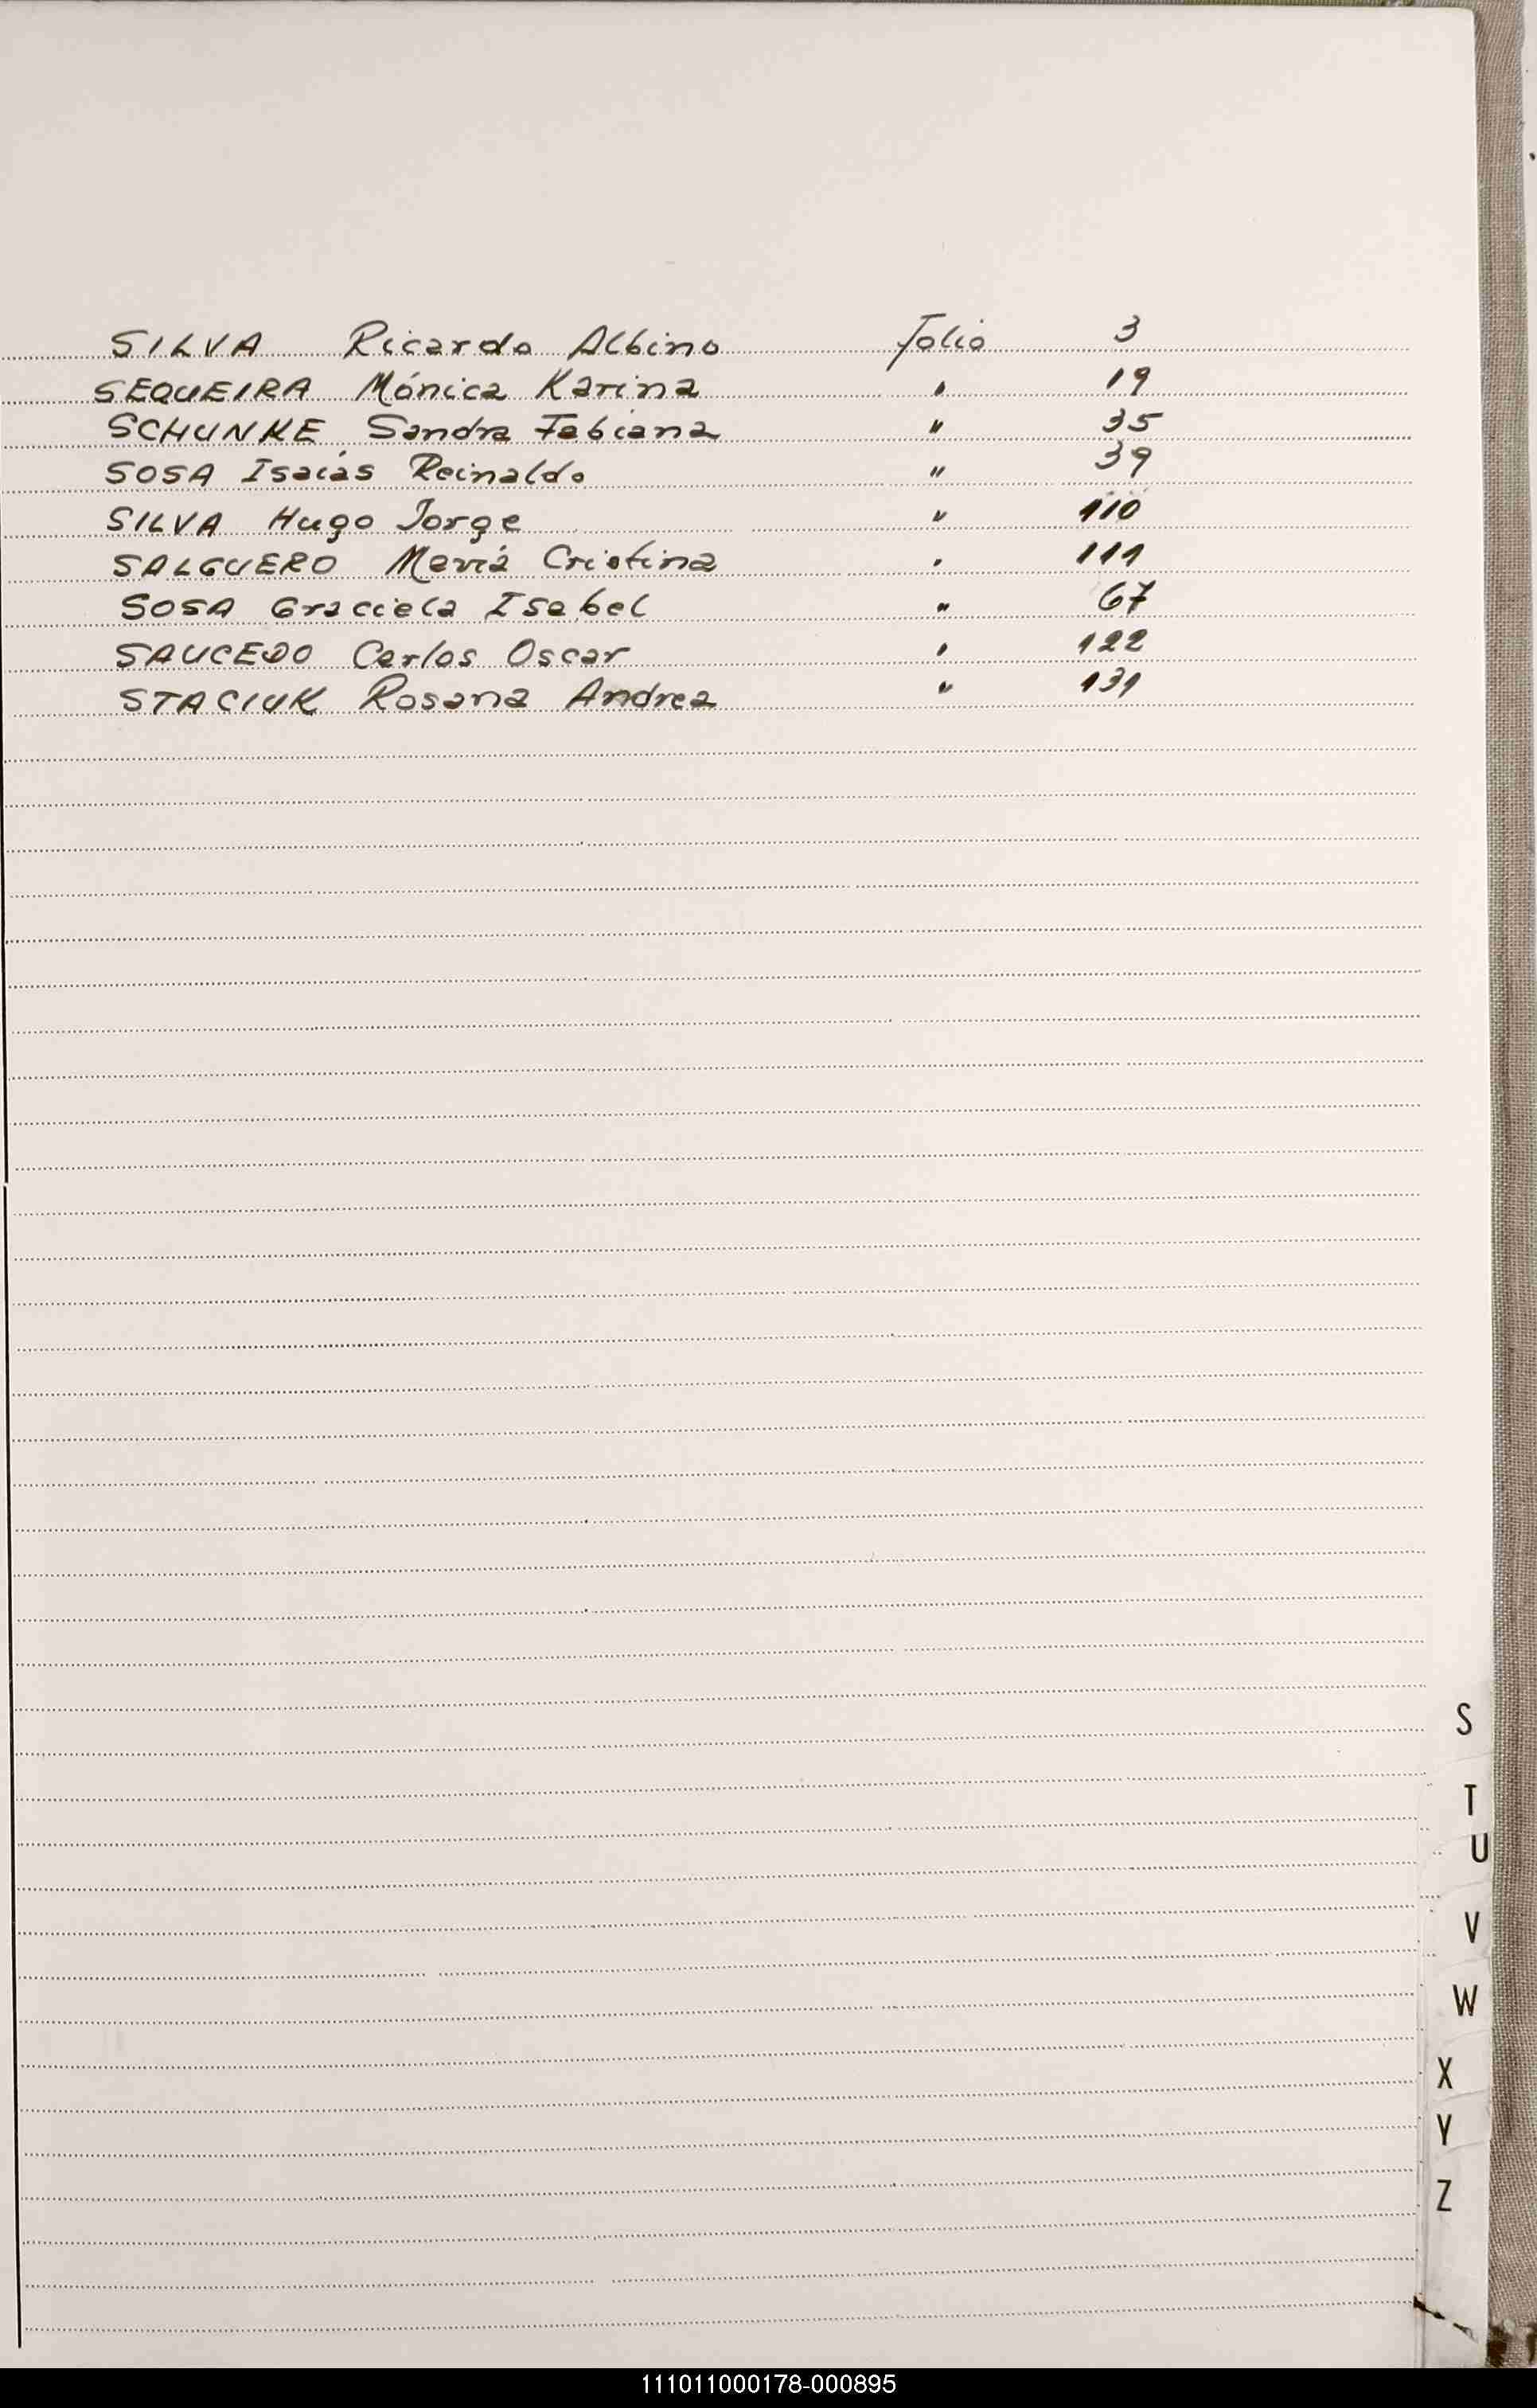 SILVA Ricardo Albino Folio 3
SEQUEIRA Mónica Karina " 19
SCHUNKE Sandra Fabiana " 35
SOSA Isaías Reinaldo " 39
SILVA Hugo Jorge " 110
SALGUERO Mariá Cristina " 111
SOSA Graciela Isabel " 67
SAUCEDO Carlos Oscar " 122
STACIUK Rosana Andrea " 131
S
T
U
V
W
X
Y
Z
111011000178-000895